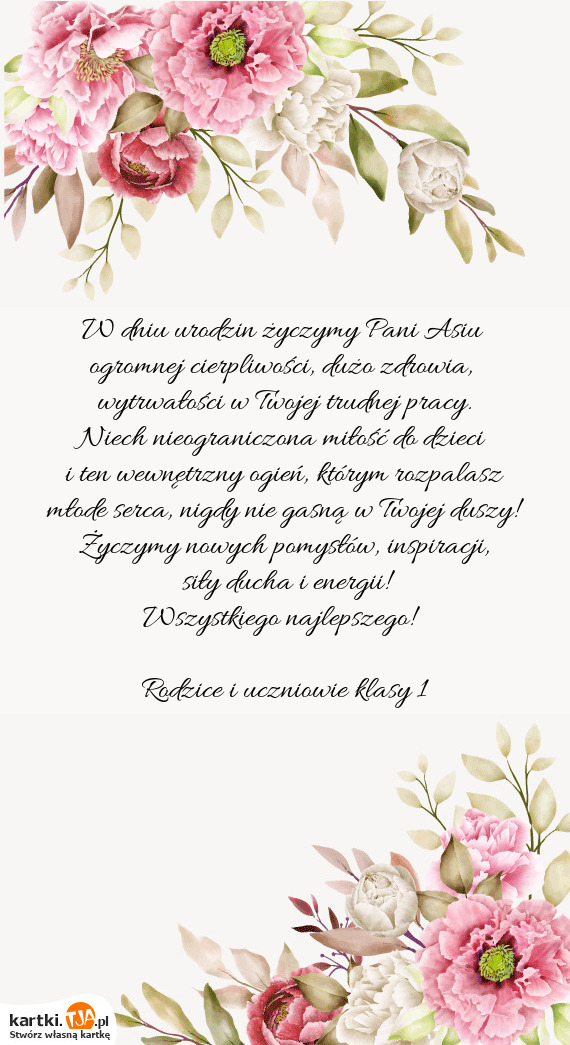 W dniu urodzin życzymy Pani Asiu
ogromnej cierpliwości, dużo zdrowia,
wytrwałości w Twojej trudnej pracy.
Niech nieograniczona miłość do dzieci
i ten wewnętrzny ogień, którym rozpalasz
młode serca, nigdy nie gasną w Twojej duszy!
Życzymy nowych pomysłów, inspiracji,
siły ducha i energii!
Wszystkiego najlepszego!
Rodzice i uczniowie klasy 1
kartki.TJA.pl
Stwórz własną kartkę